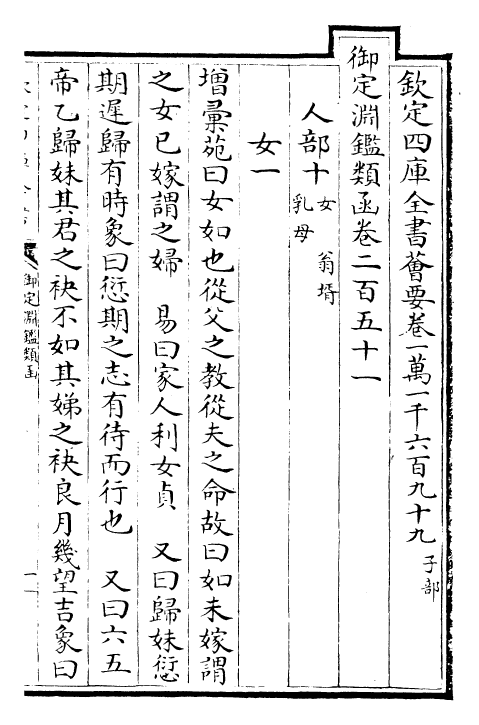 欽定四庫全書薈要卷一萬一千六百九十九 子部
御定淵鑑類函卷二百五十一
人部十 女 翁壻 乳母
女一
增彙苑曰女如也從父之教從夫之命故曰如未嫁謂
之女已嫁謂之婦 易曰家人利女貞 又曰歸妹愆
期遲歸有時象曰愆期之志有待而行也 又曰六五
帝乙歸妹其君之袂不如其娣之袂良月幾望吉象曰
御定淵鑑類函